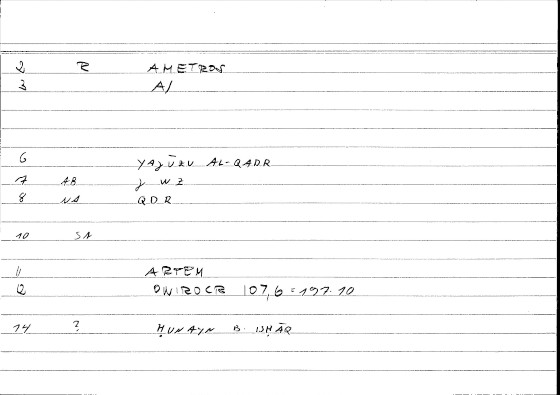 2 R AMETROS
3 A/
6 YAǦŪZU AL-QADR
7 AB ǧ W Z
8 NA QDR
10 SA
11 ARTEM
12 ONIROCR 107,6 = 197.10
14 ? ḤUNAYN B. ISḤĀQ